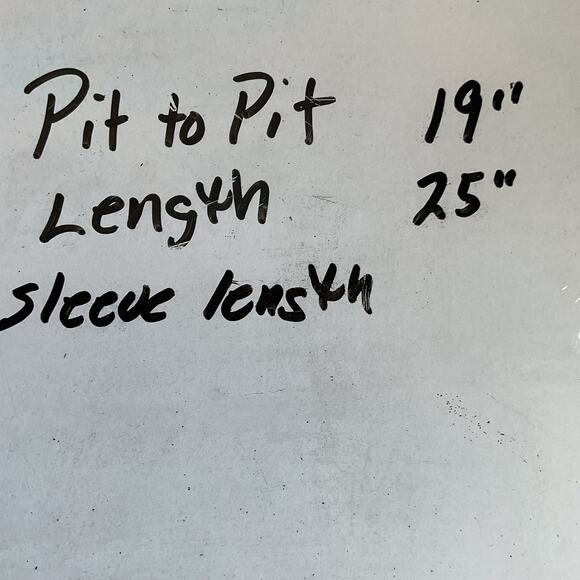 Pit to Pit 19"
Length 25"
Sleeve length